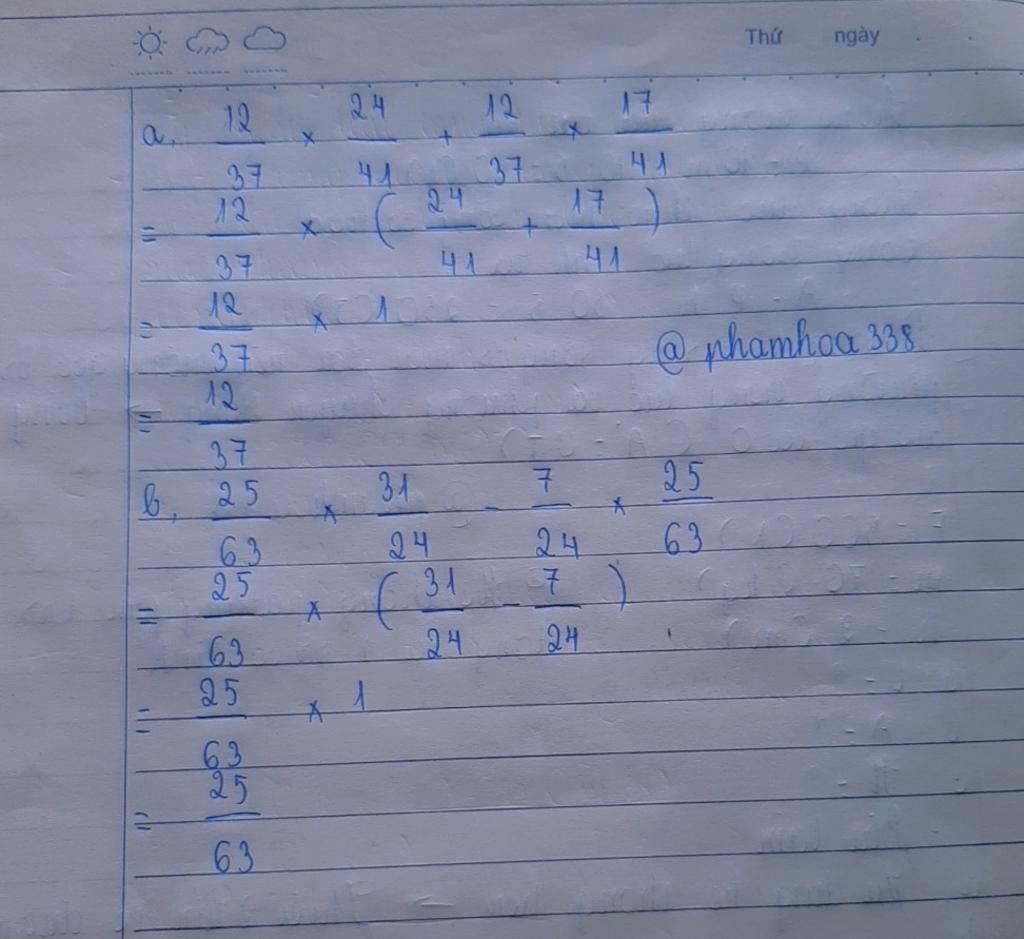 Thứ ngày
a, 12/37 × 24/41 + 12/37 × 17/41
= 12/37 × ( 24/41 + 17/41 )
= 12/37 × 1
@phamhoa338
= 12/37
b, 25/63 × 31/24 - 7/24 × 25/63
= 25/63 × ( 31/24 - 7/24 )
= 25/63 × 1
= 25/63